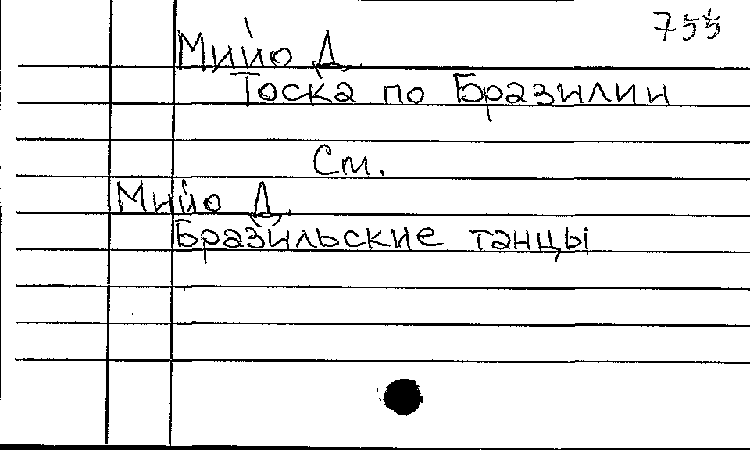 755
Мийо Д.
Тоска по Бразилии
См.
Мийо Д.
Бразильские танцы